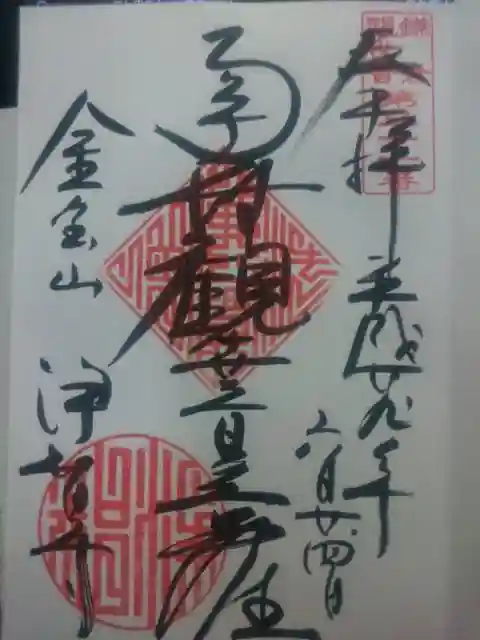 奉拝 平成廿九年
八月廿四日
南無觀世音菩薩
金宝山 浄智寺